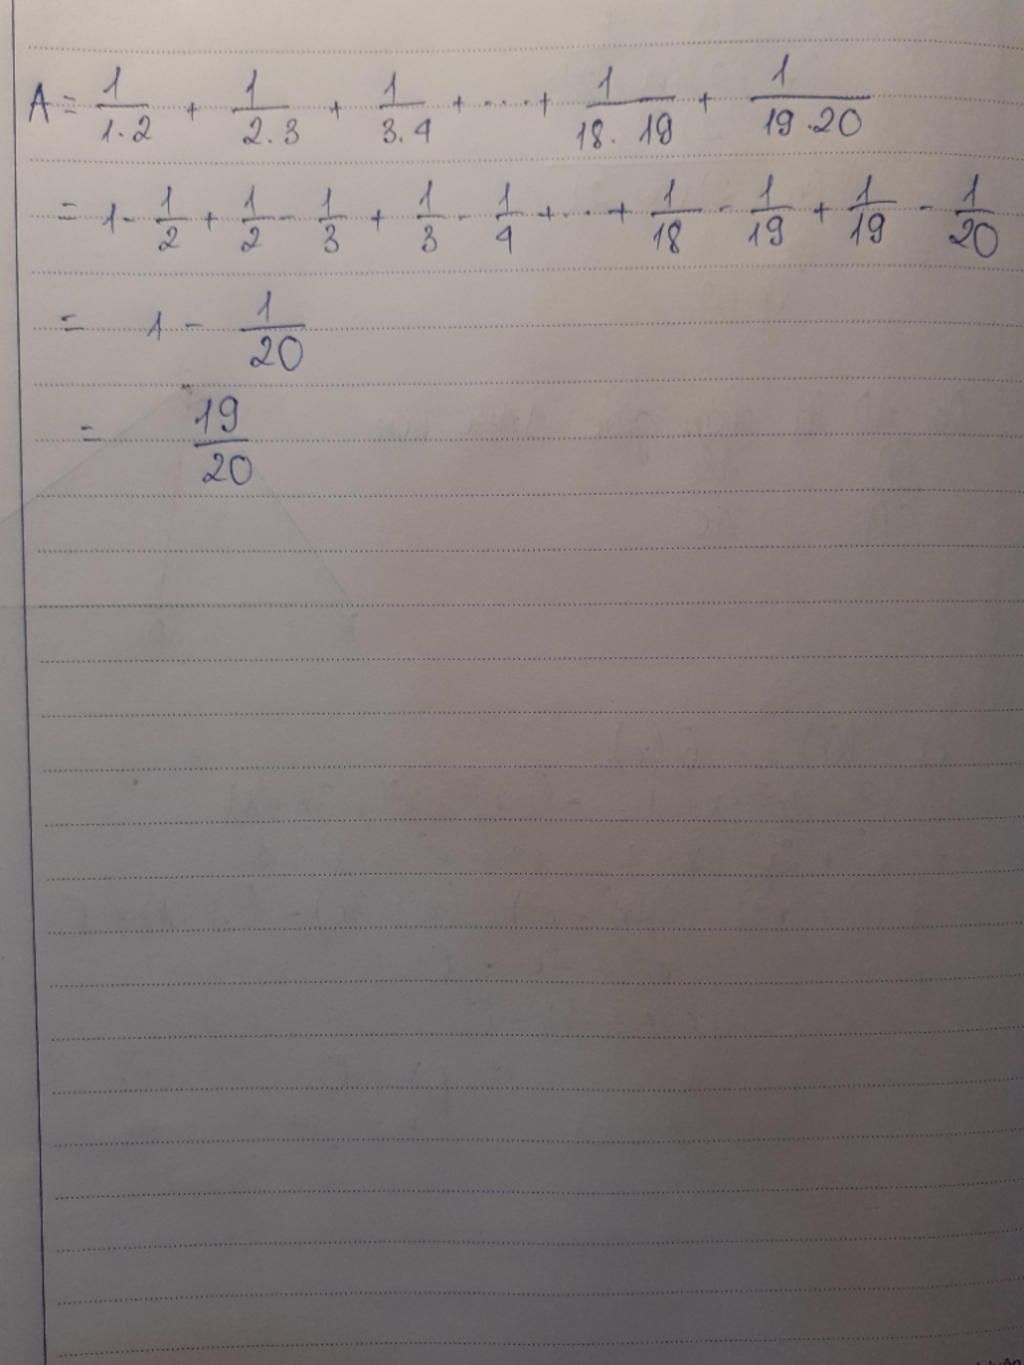 A = 1/1.2 + 1/2.3 + 1/3.4 + .... + 1/18.19 + 1/19.20
= 1 - 1/2 + 1/2 - 1/3 + 1/3 - 1/4 + ... + 1/18 - 1/19 + 1/19 - 1/20
= 1 - 1/20
= 19/20